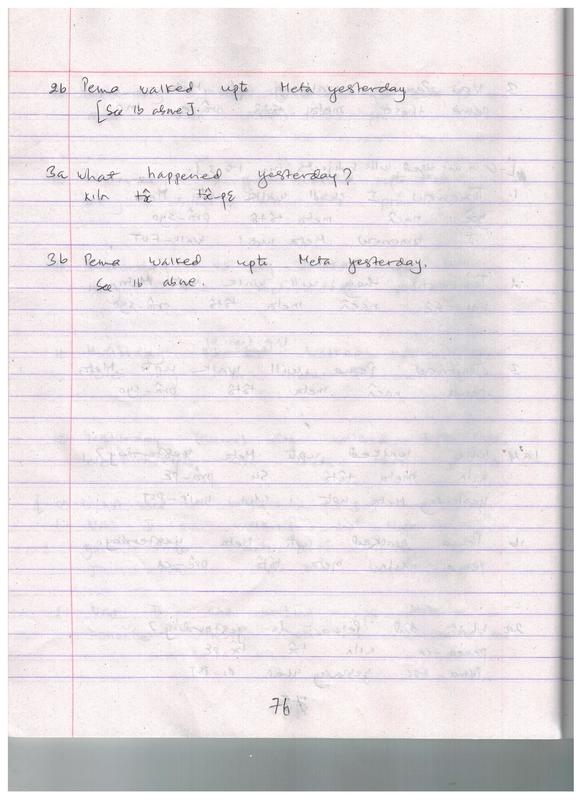 2b Pema walked upto Meta yesterday
[See 1b above].
3a what happened yesterday?
kiln tɜ̂ tɜ̂-pɛ
3b Pema walked upto Meta yesterday.
See 1b above.
76